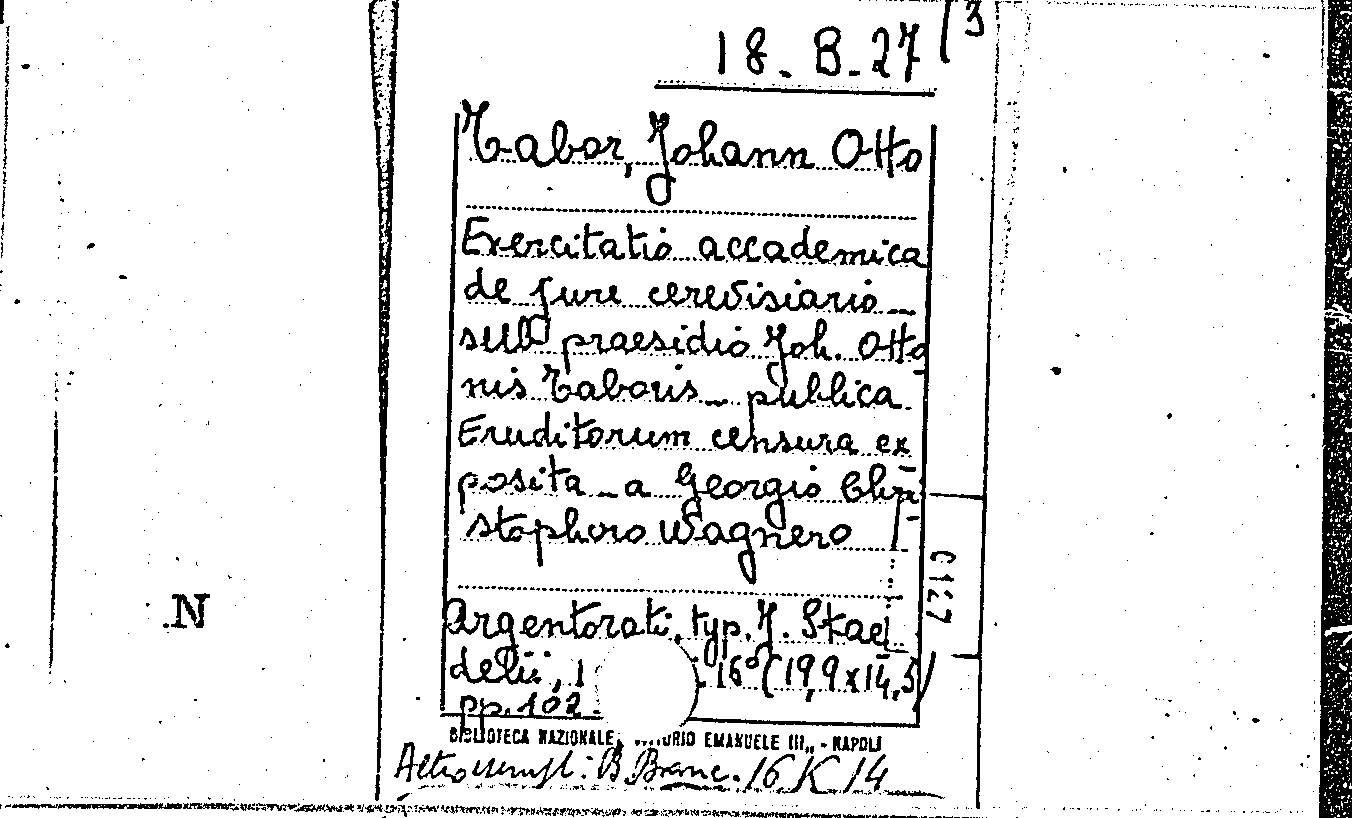 18. B. 27 (3
Tabor, Johann Otto
Exercitatio accademica
de jure cerevisiario _
sub praesidio Joh. Otto
nis Taboris _ publica
Eruditorum censura ex
posita _ a Georgio Chri
stophoro Wagnero
Argentorati, typ. J. Stae
delii, 1 16° (19,9x14,5)
pp. 102.
BIBLIOTECA NAZIONALE, ORIO EMANUELE III,, - NAPOLI
Altro esempl: B. Branc. 16 K 14
N
C127